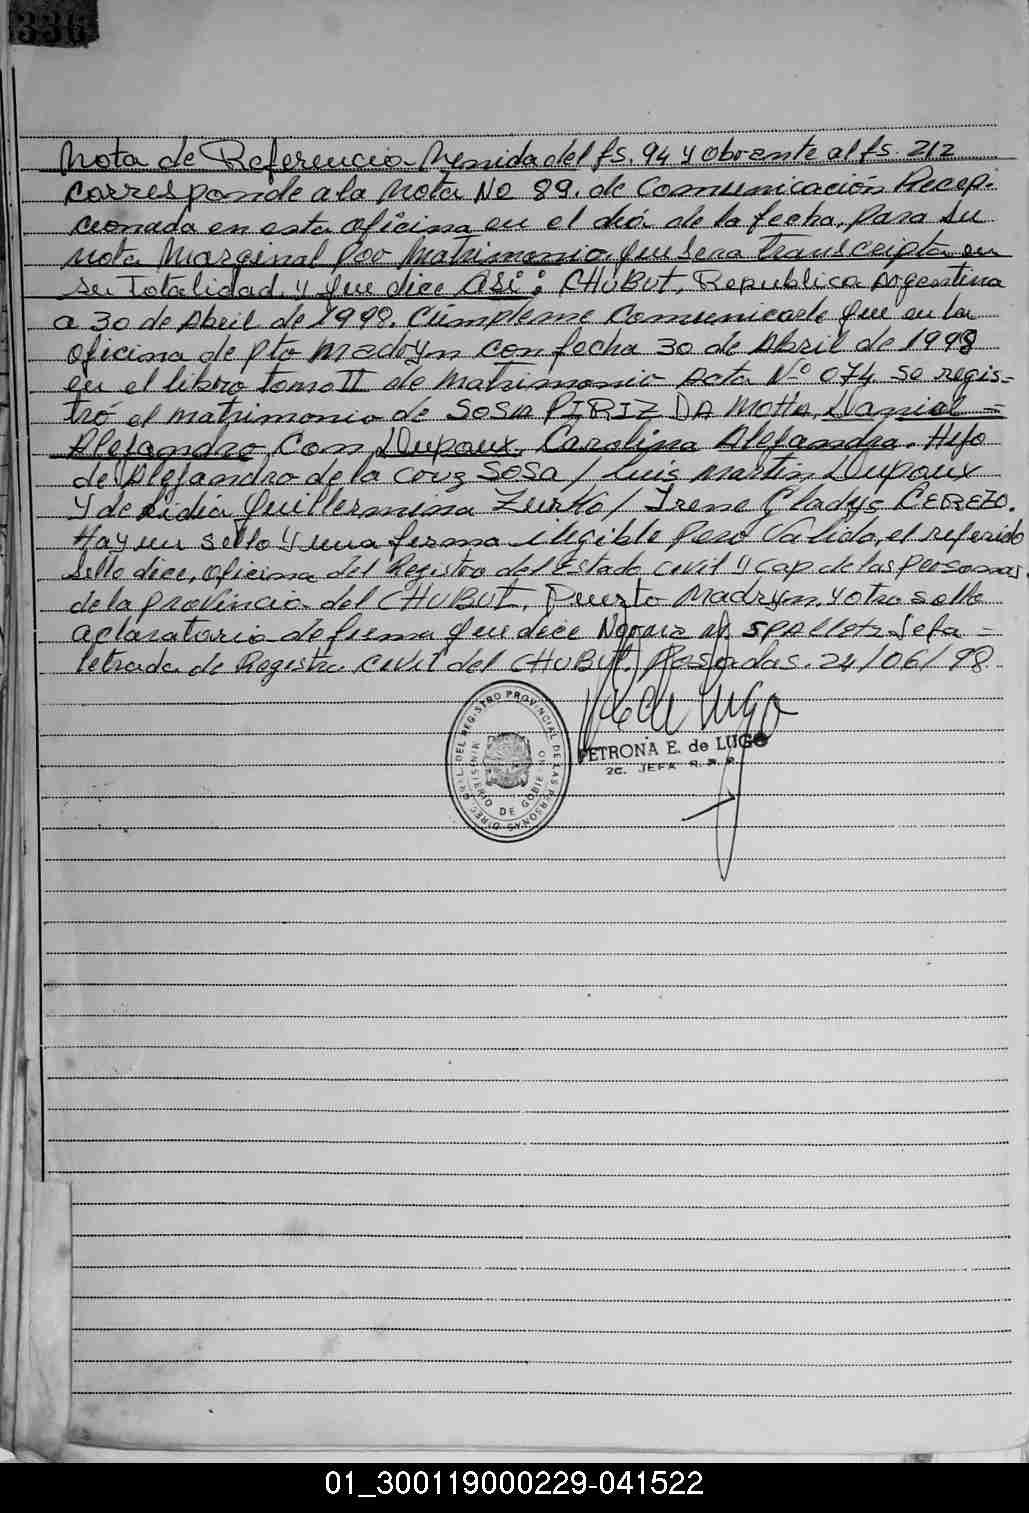 336
Nota de Referencia - Venida del fs. 94 y obrante al fs. 212
corresponde a la Nota No 89. de Comunicación Recep-
cionada en esta oficina en el día de la fecha, para su
nota Marginal por Matrimonio que sera transcripta en
su Totalidad y que dice Así: CHUBUT, Republica Argentina
a 30 de Abril de 1998. Cúmpleme Comunicarle que en la
oficina de Pto Madryn con fecha 30 de Abril de 1998
en el libro tomo II de Matrimonio Acta Nº 074 se regis-
tró el matrimonio de SOSA PIRIZ DA Motta, Daniel =
Alejandro, Con, Dupoux, Carolina Alejandra. Hijo
de Alejandro de la Cruz SOSA / Luis Martin Dupoux
y de Lidia Guillermina Zurko / Irene Gladys CEREZO.
Hay un sello y una firma ilegible pero Valida, el referido
sello dice, oficina del Registro del Estado civil y cap. de las Personas
de la provincia del CHUBUT, Puerto Madryn, y otro sello
aclaratorio de firma que dice Norma SPALLETI Jefa =
letrada de Registro civil del CHUBUT. Posadas. 24/06/98.
DIREC. GRAL. DEL REGISTRO PROVINCIAL DE LAS PERSONAS
MINISTERIO DE GOBIERNO
de Lugo
PETRONA E. de LUGO
2a. JEFA R.P.P.
01_300119000229-041522